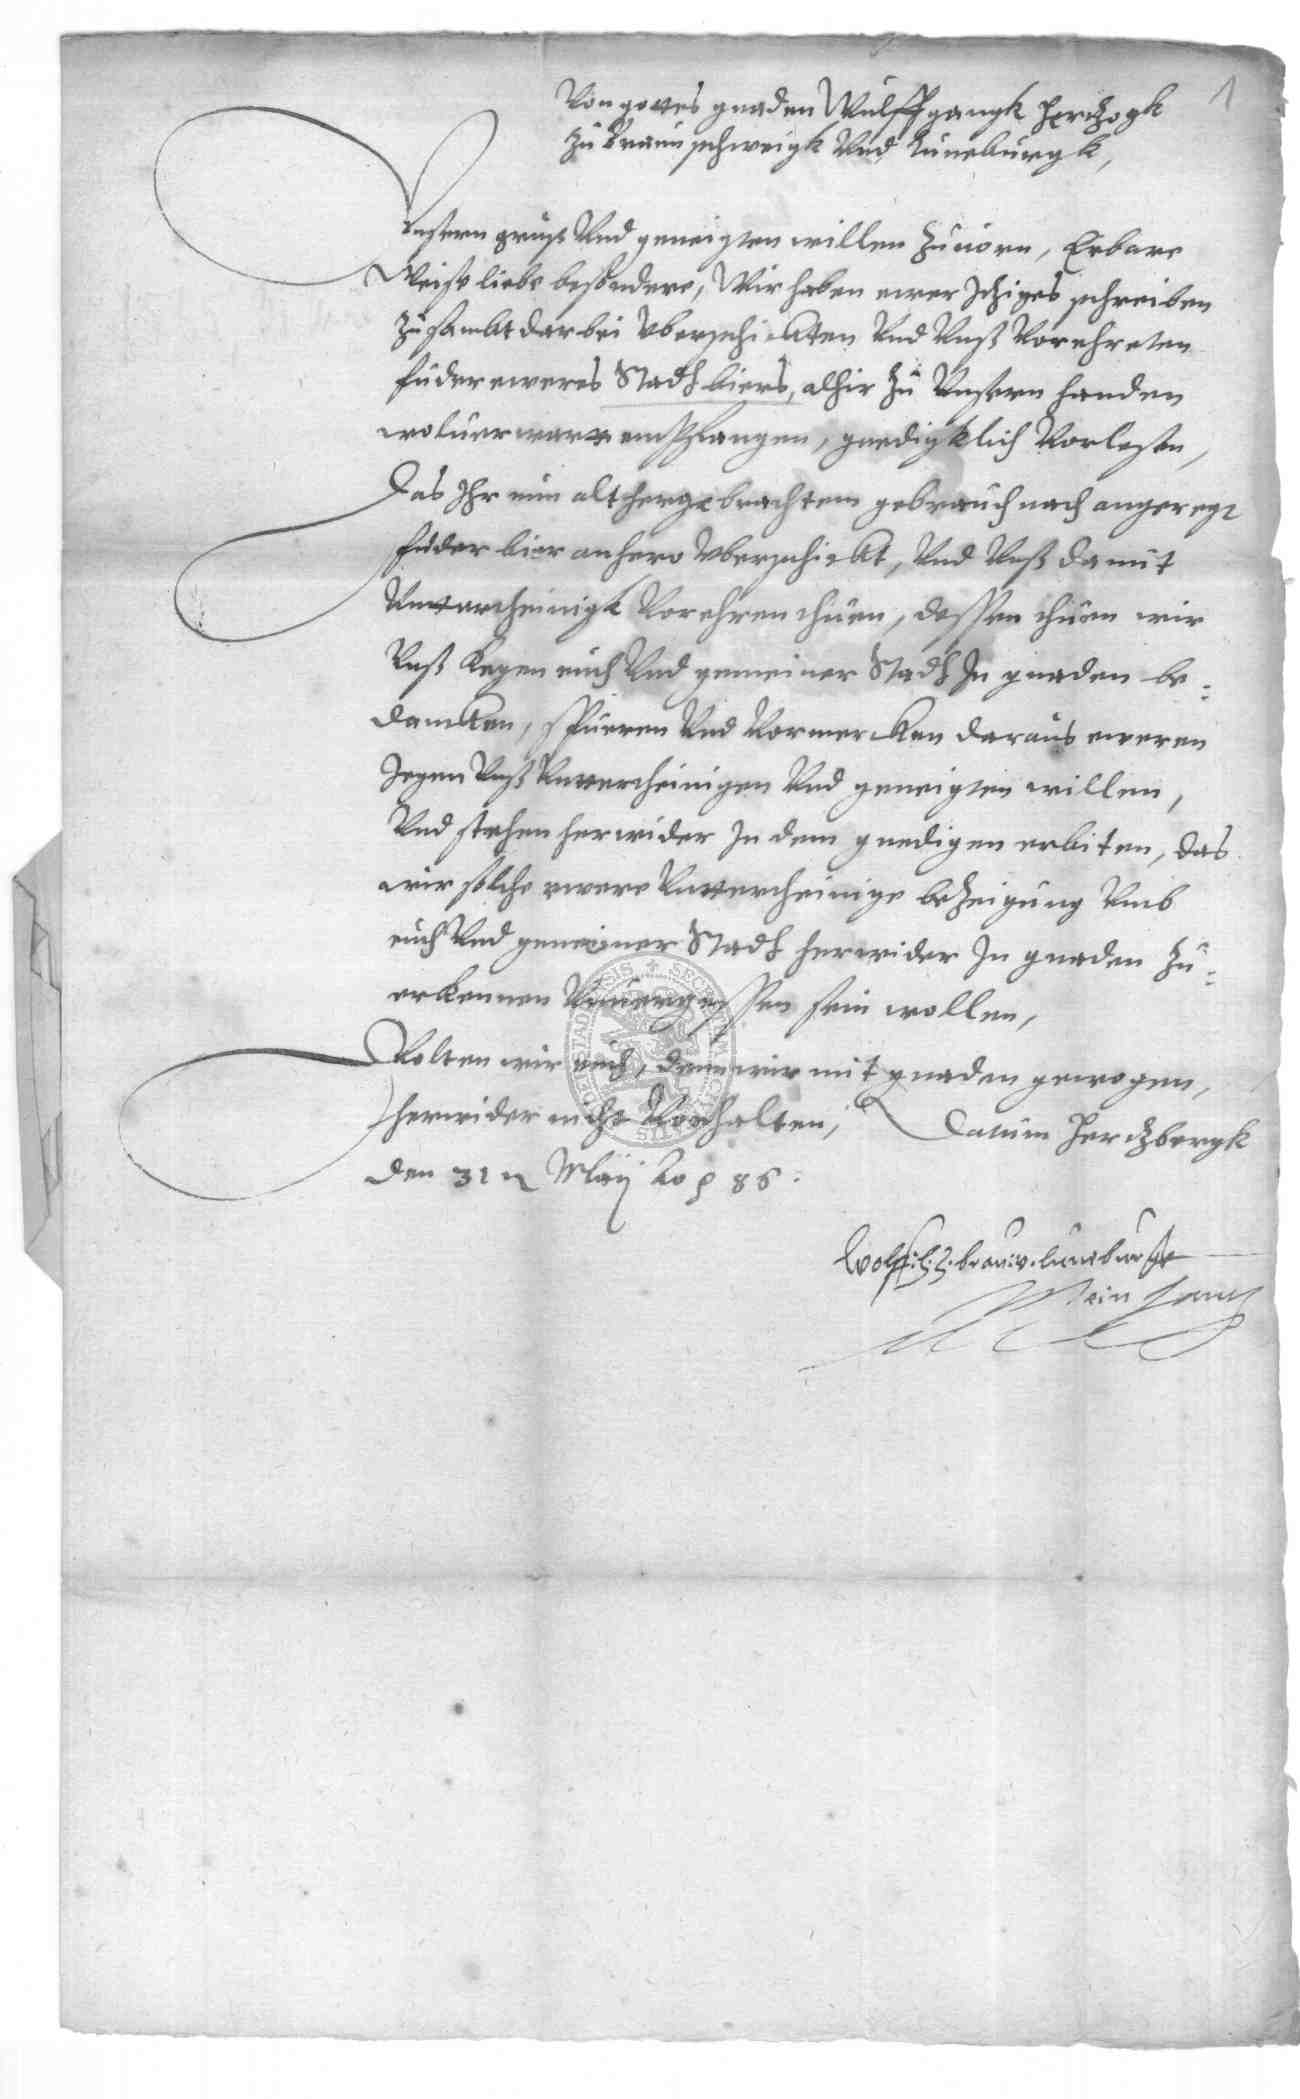 1
Von gottes gnaden Wulffgangk Hertzogk
zu Braunschweigk Vnd Luneburgk,
Vnsern grus Vnd geneigten willen zuuorn, Erbare
Weise liebe besondere, Wir haben ewer Itziges schreiben
zusambt darbei vberschickten Vnd Vnß Vorehreten
fuder eweres Stadt biers, alhir zu Vnsern handen
woluerwart empfhangen, gnedigklich Vorlesen,
Das Ihr nun althergebrachtem gebrauch nach angeregt
fuder bier anhero vberschickt, Vnd Vnß damit
Vnterthenigk Vorehren thuen, dessen thuen wir
Vnß kegen euch Vnd gemeiner Stadt In gnaden be-
dancken, spueren Vnd Vormercken daraus eweren
Jegen Vnß Vnterthenigen Vnd geneigten willen,
Vnd stehen herwider In dem gnedigen erbiten, das
wir solche ewere Vnterthenige beZeigung Vmb
euch Vnd gemeiner Stadt herwider In gnaden zu-
erkennen Vnuergessen sein wollen,
Wolten wir euch, denen wir mit gnaden gewogen,
herwider nicht Vorhalten, Datum Hertzbergk
den 31 Maij Ao p 86.
Wolff. h. z. brau. v. luneburgk
mein handt
SECRETUM CIVITATIS